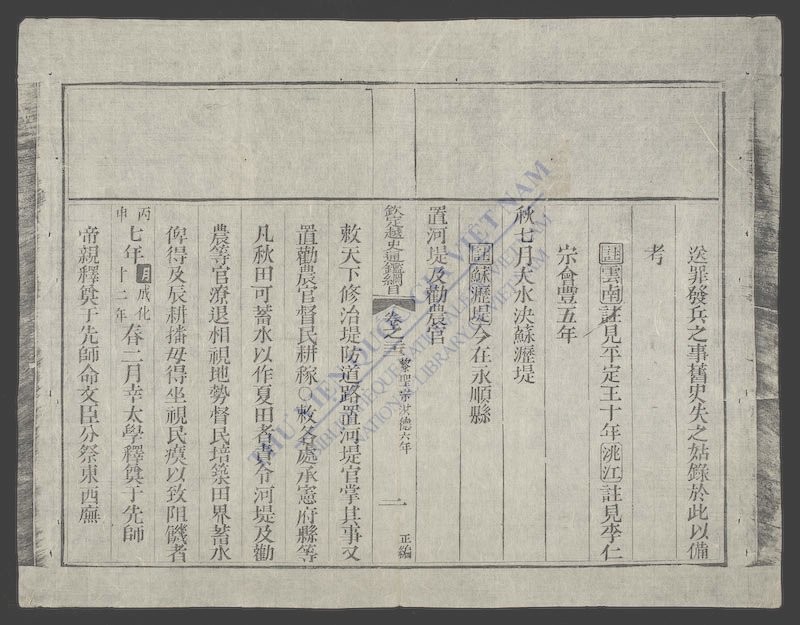 送罪發兵之事舊史失之姑錄於此以備
考
註雲南註見平定王十年洮江註見李仁
宗會豐五年
秋七月大水決蘇瀝堤
註蘇瀝堤今在永順縣
置河堤及勸農官
欽定越史通鑑綱目 卷之 黎聖宗洪德六年 一 正編
敕天下修治堤防道路置河堤官掌其事又
置勸農官督民耕稼〇敕各處承憲府縣等
凡秋田可蓄水以作夏田者責令河堤及勸
農等官潦退相視地勢督民培築田界蓄水
俾得及辰耕播毋得坐視民瘼以致阻饑者
丙申七年明成化十二年春二月幸太學釋奠于先師
帝親釋奠于先師命文臣分祭東西廡
THƯ VIỆN QUỐC GIA VIỆT NAM
BIBLIOTHEQUE NATIONALE DU VIETNAM
NATIONAL LIBRARY OF VIETNAM